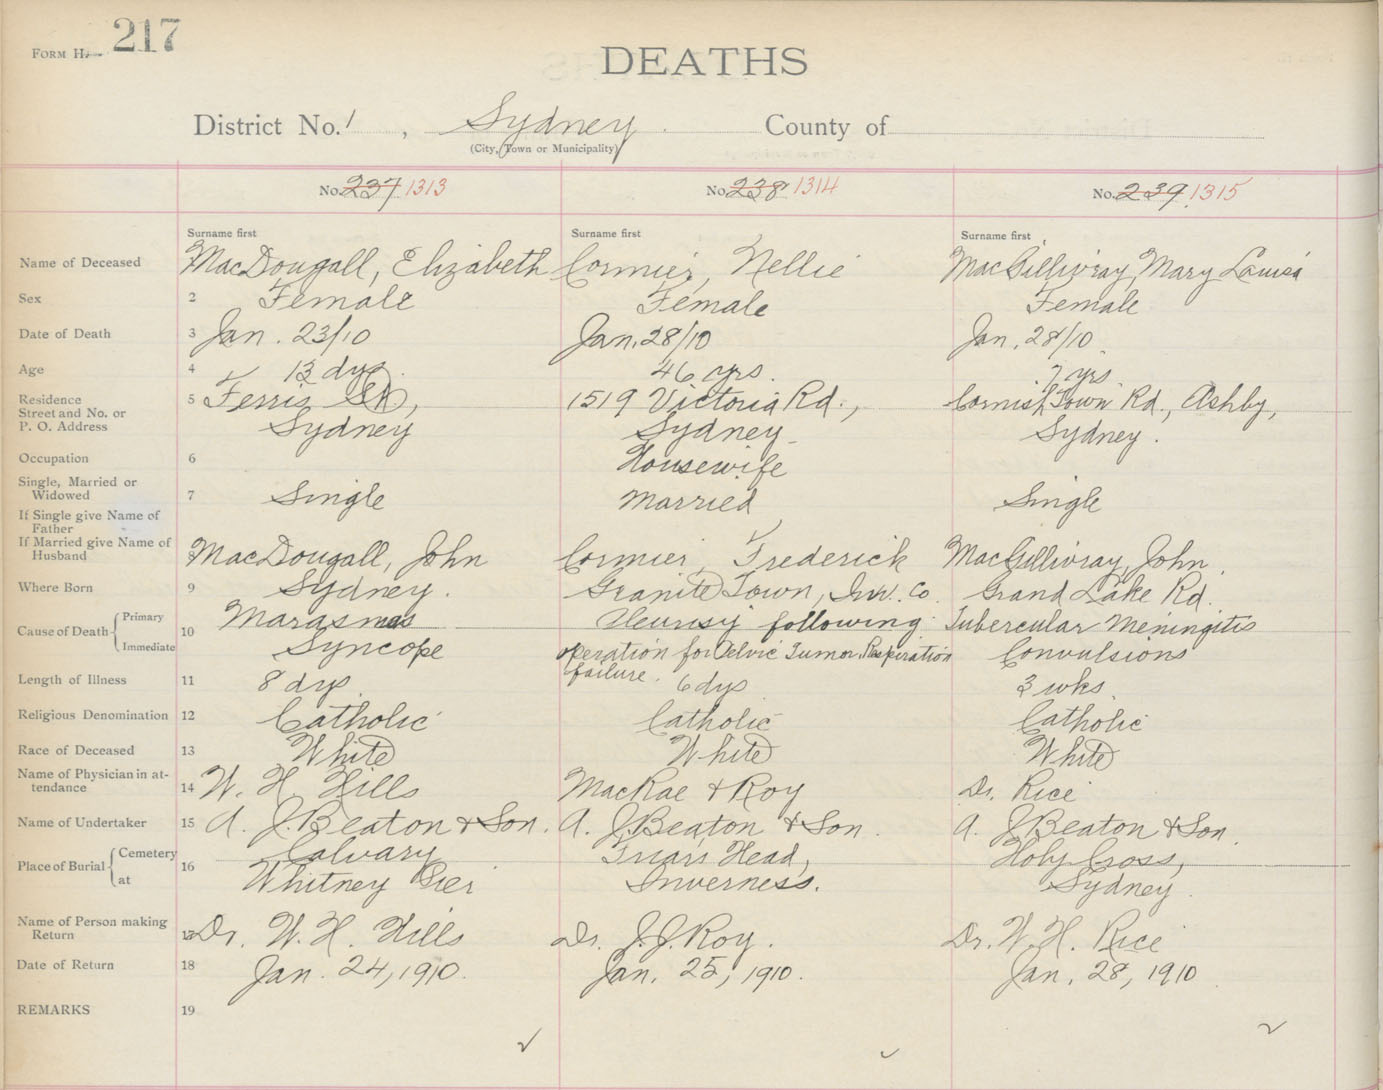 FORM H. 217
DEATHS
District No. 1, Sydney County of
(City, Town or Municipality)
No. 237 1313 No. 238 1314 No. 239 1315
Surname first Surname first Surname first
Name of Deceased MacDougall, Elizabeth Cormier, Nellie MacGillivray, Mary Louisa
Sex 2 Female Female Female
Date of Death 3 Jan. 23/10 Jan. 28/10 Jan. 28/10
Age 4 13 dys. 46 yrs. 7 yrs.
Residence 5 Ferris St., 1519 Victoria Rd., Cornish Town Rd., Ashby,
Street and No. or
P. O. Address Sydney Sydney Sydney.
Occupation 6 Housewife
Single, Married or
Widowed 7 Single Married Single
If Single give Name of
Father
If Married give Name of
Husband 8 MacDougall, John Cormier, Frederick MacGillivray, John.
Where Born 9 Sydney. Granite Town, Inv. Co. Grand Lake Rd.
Cause of Death Primary 10 Marasmas Pleurisy following Tubercular Meningitis
Immediate Syncope operation for Pelvic Tumor. Respiration Convulsions
failure.
Length of Illness 11 8 dys 6 dys 3 wks.
Religious Denomination 12 Catholic Catholic Catholic
Race of Deceased 13 White White White
Name of Physician in at-
tendance 14 W. H. Hills MacRae & Roy Dr. Rice
Name of Undertaker 15 A. J. Beaton & Son. A. J. Beaton & Son. A. J. Beaton & Son.
Place of Burial Cemetery 16 Calvary Friar's Head, Holy Cross,
at Whitney Pier Inverness. Sydney.
Name of Person making
Return 17 Dr. W. H. Hills Dr. J. J. Roy. Dr. W. H. Rice
Date of Return 18 Jan. 24, 1910. Jan. 25, 1910. Jan. 28, 1910
REMARKS 19